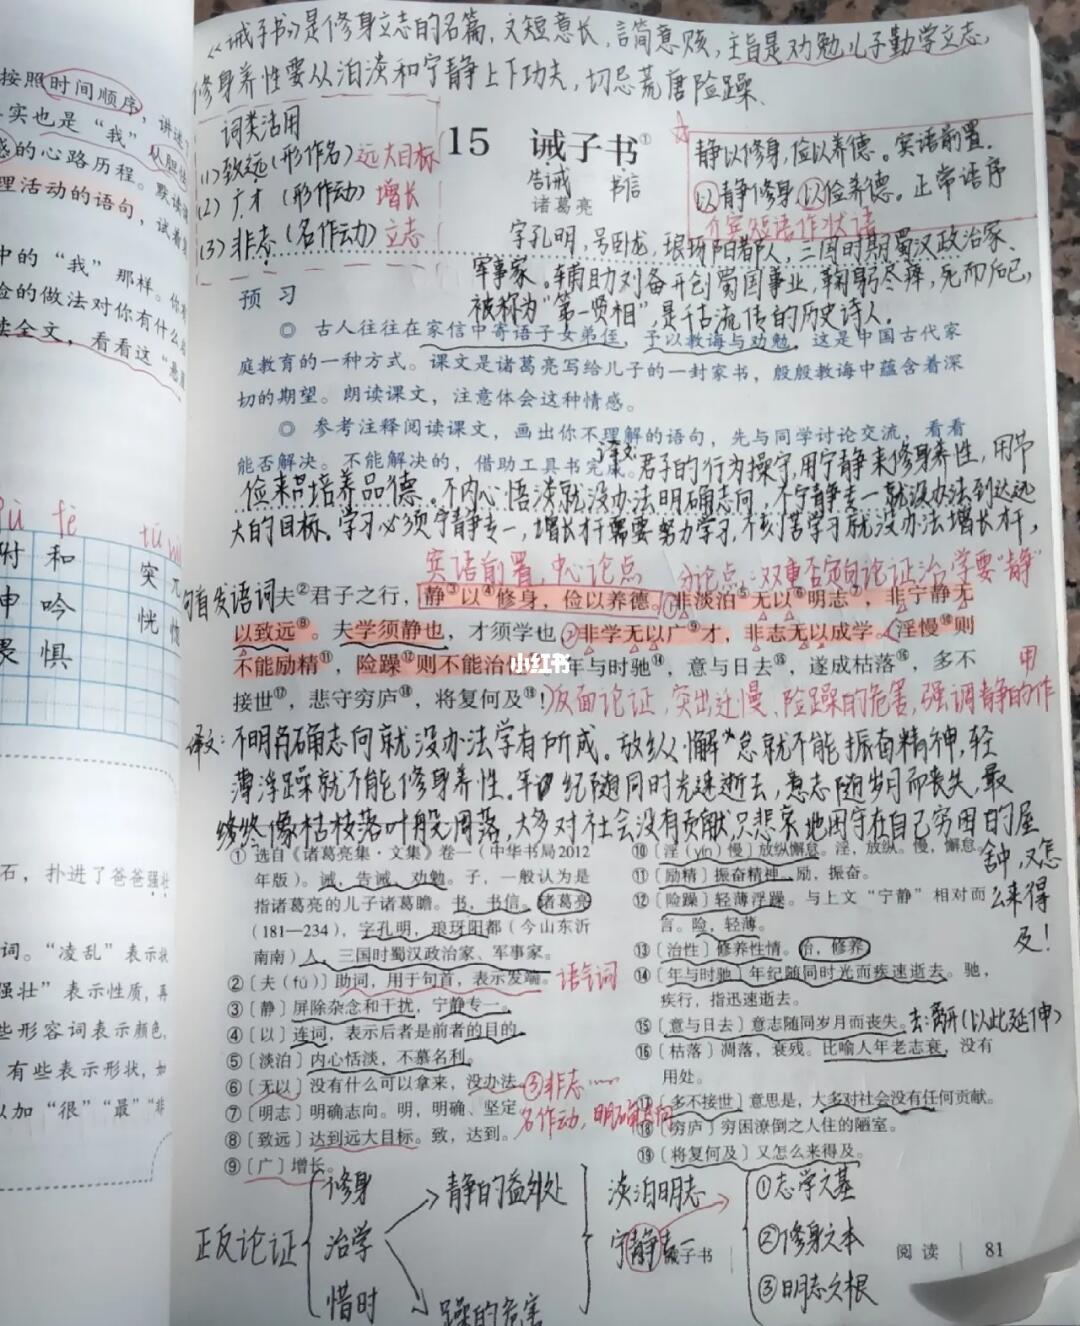 《诫子书》是修身立志的名篇，文短意长，言简意赅，主旨是劝勉儿子勤学立志，
修身养性要从泊淡和宁静上下功夫，切忌荒唐险躁、
词类活用
(1)致远(形作名)远大目标
(2)广才(形作动)增长
(3)非志(名作动)立志
15 诫子书①
告诫 书信
诸葛亮
静以修身，俭以养德。宾语前置.
以静修身 以俭养德。正常语序
介宾短语作状语
字孔明，号卧龙，琅琊阳都人，三国时期蜀汉政治家、
军事家。辅助刘备开创蜀国事业，鞠躬尽瘁，死而后已，
被称为“第一贤相”，是千古流传的历史诗人。
预 习
◎ 古人往往在家信中寄语子女弟侄，予以教诲与劝勉。这是中国古代家
庭教育的一种方式。课文是诸葛亮写给儿子的一封家书，殷殷教诲中蕴含着深
切的期望。朗读课文，注意体会这种情感。
◎ 参考注释阅读课文，画出你不理解的语句，先与同学讨论交流，看看
能否解决。不能解决的，借助工具书完成。
译文：君子的行为操守，用宁静来修身养性，用节
俭来培养品德。不内心恬淡就没办法明确志向，不宁静专一就没办法到达远
大的目标。学习必须宁静专一，增长才干需要努力学习，不刻苦学习就没办法增长才干，
宾语前置，中心论点
分论点：双重否定句论证治学要“静”
句首发语词
夫②君子之行，静③以④修身，俭以养德。①非淡泊⑤无以⑥明志⑦，非宁静无
以致远⑧。夫学须静也，才须学也②非学无以广⑨才，非志无以成学。淫慢⑩则
不能励精⑪，险躁⑫则不能治性⑬。年与时驰⑭，意与日去⑮，遂成枯落⑯，多不
接世⑰，悲守穷庐⑱，将复何及⑲！
反面论证，突出淫慢、险躁的危害，强调静的作
用
译文：不明确志向就没办法学有所成。放纵懈怠就不能振奋精神，轻
薄浮躁就不能修身养性。年纪随同时光迅逝去，意志随岁月而丧失，最
终像枯枝落叶般凋落，大多对社会没有贡献，只悲哀地困守在自己穷困的屋
舍中，又怎
么来得
及！
① 选自《诸葛亮集·文集》卷一（中华书局2012
年版）。诫，告诫、劝勉。子，一般认为是
指诸葛亮的儿子诸葛瞻。书，书信。诸葛亮
（181—234），字孔明，琅玡阳都（今山东沂
南南）人，三国时蜀汉政治家、军事家。
②〔夫（fú）〕助词，用于句首，表示发端。语气词
③〔静〕屏除杂念和干扰，宁静专一。
④〔以〕连词，表示后者是前者的目的。
⑤〔淡泊〕内心恬淡，不慕名利。
⑥〔无以〕没有什么可以拿来，没办法。
⑦〔明志〕明确志向。明，明确、坚定。
⑧〔致远〕达到远大目标。致，达到。
⑨〔广〕增长。
③非志……
名作动，明确志向
⑩〔淫（yín）慢〕放纵懈怠。淫，放纵。慢，懈怠。
⑪〔励精〕振奋精神。励，振奋。
⑫〔险躁〕轻薄浮躁。与上文“宁静”相对而
言。险，轻薄。
⑬〔治性〕修养性情。治，修养。
⑭〔年与时驰〕年纪随同时光而疾速逝去。驰，
疾行，指迅速逝去。
⑮〔意与日去〕意志随同岁月而丧失。去：离开(以此延伸)
⑯〔枯落〕凋落，衰残。比喻人年老志衰，没有
用处。
⑰〔多不接世〕意思是，大多对社会没有任何贡献。
⑱〔穷庐〕穷困潦倒之人住的陋室。
⑲〔将复何及〕又怎么来得及。
正反论证
修身
治学
惜时
静的益处
躁的危害
淡泊明志
宁静专一
①志学之基
②修身之本
③明志之根
诫子书
阅读 81
按照时间顺序，讲述
实也是“我”从胆怯
的心路历程。默读
理活动的语句，试着
中的“我”那样。你有
险的做法对你有什么
读全文，看看这“悬
和
吟
惧
突 兀
恍
石，扑进了爸爸强壮
词。“凌乱”表示状
强壮”表示性质，再
些形容词表示颜色，
有些表示形状，如
以加“很”“最”“非
小红书